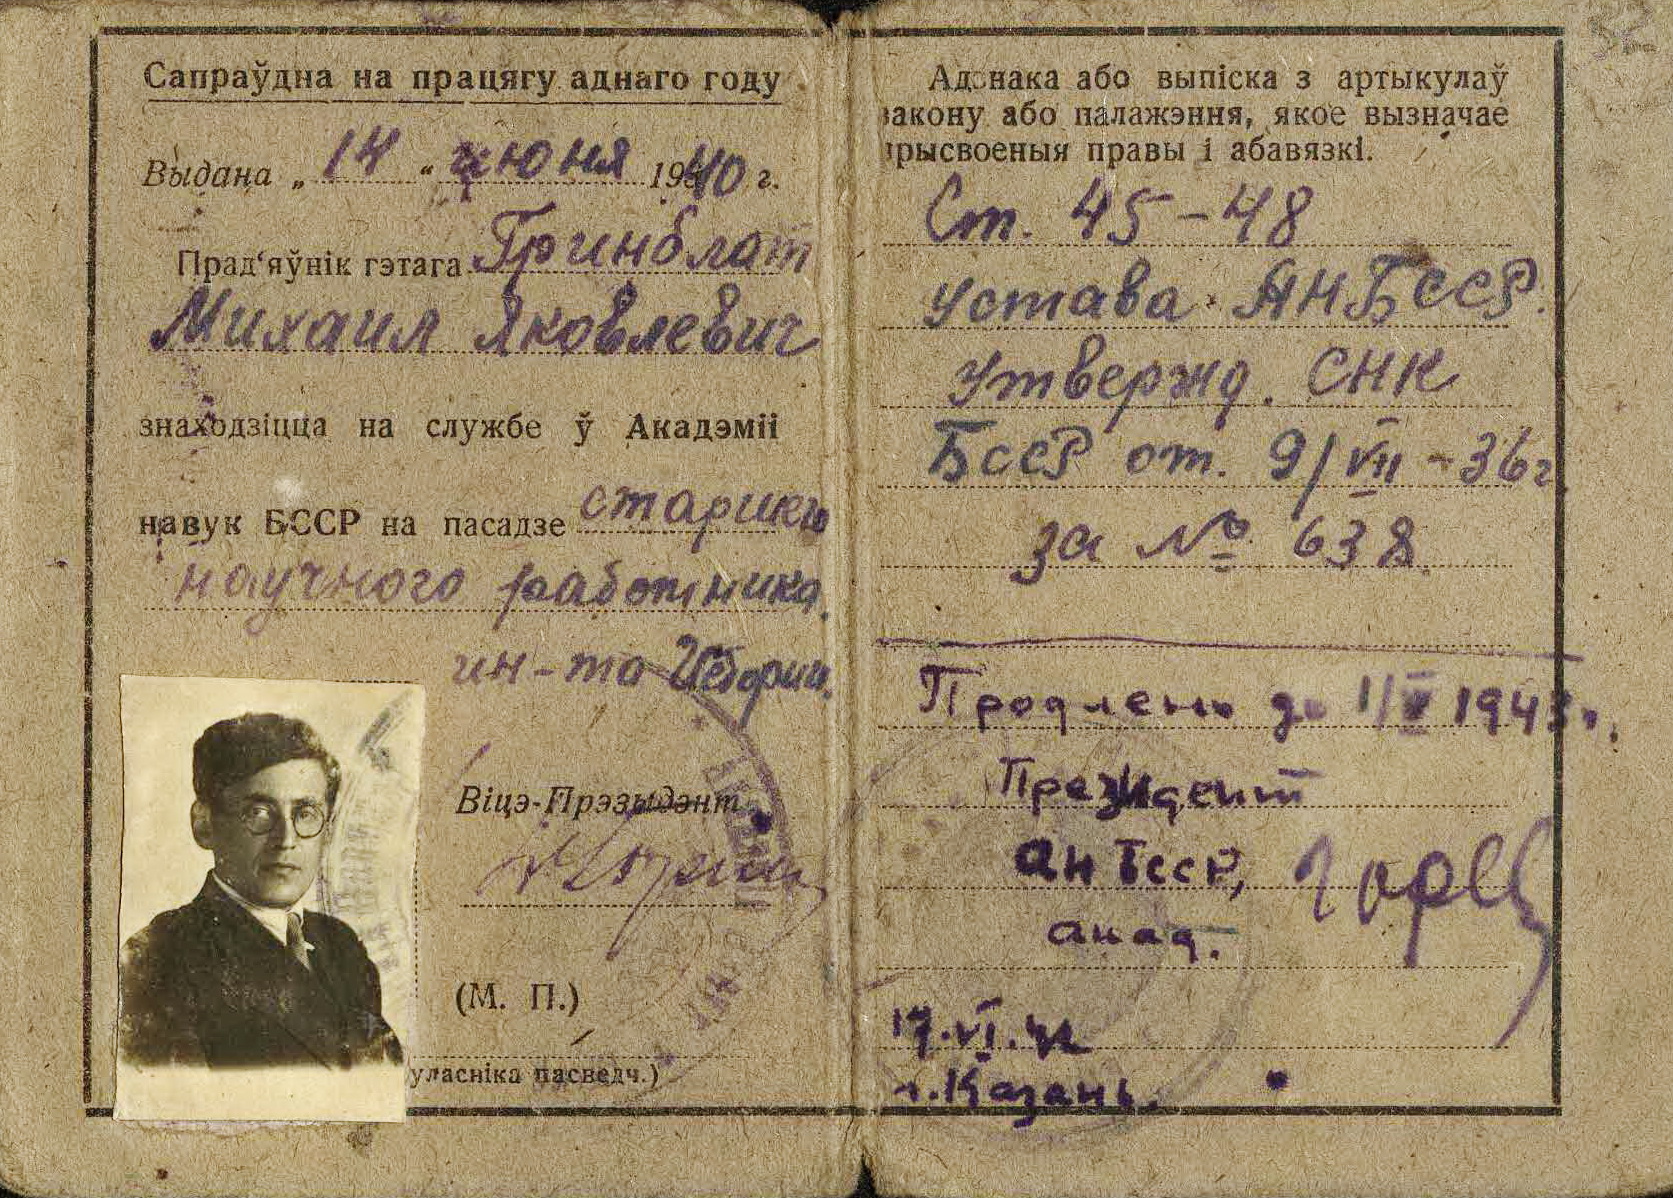 Сапраўдна на працягу аднаго году
Выдана „14“ июня 1940 г.
Прад‘яўнік гэтага Гринблат
Михаил Яковлевич
знаходзіцца на службе ў Акадэміі
навук БССР на пасадзе старшего
научного работника.
ин-та Истории.
Віцэ-Прэзыдэнт
(М. П.)
уласніка пасведч.)
32
Адзнака або выпіска з артыкулаў
закону або палажэння, якое вызначае
прысвоеныя правы і абавязкі.
Ст. 45-48
устава АН БССР.
Утвержд. СНК
БССР от. 9/VII-36г
за № 638.
Продлено до 1/V 1943 г.
Президент
АН БССР,
акад.
17.VI.42
г. Казань.